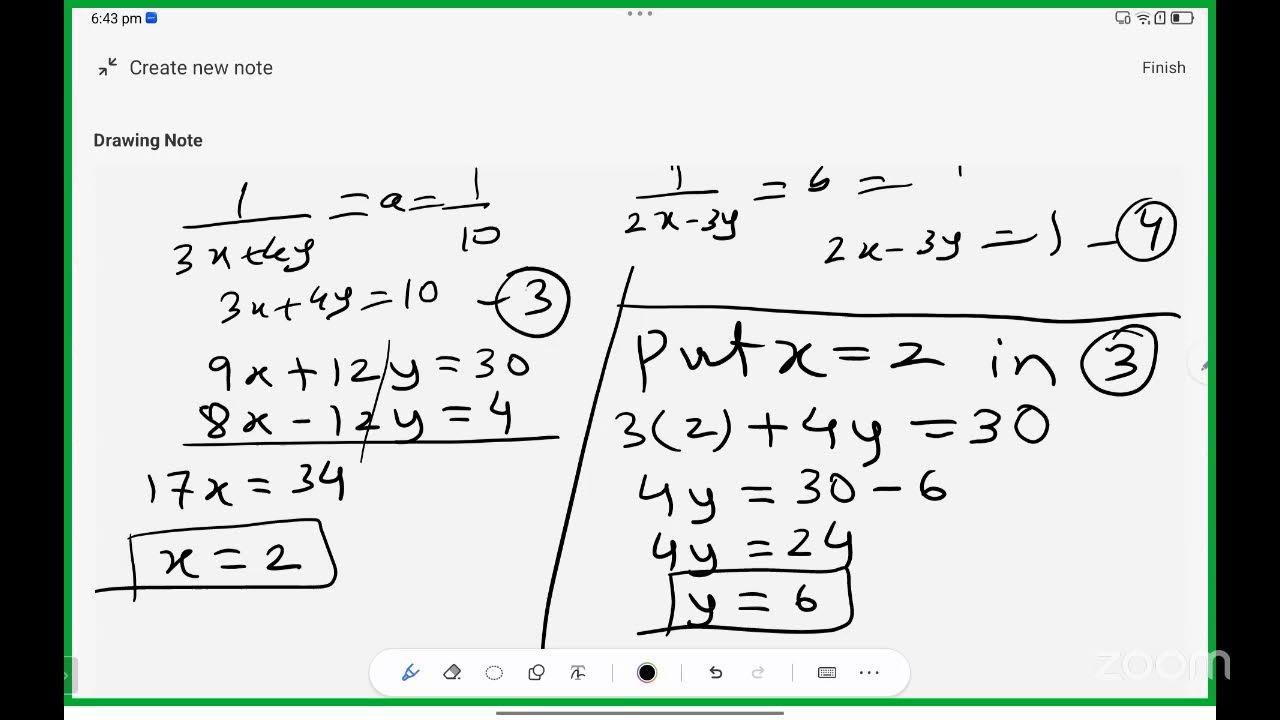 6:43 pm
Create new note
Finish
Drawing Note
1/(3x+4y) = a = 1/10
3x+4y=10 - ③
9x+12y=30
8x-12y=4
17x=34
x=2
1/(2x-3y) = b =
2x-3y=1 - ④
Put x=2 in ③
3(2)+4y=30
4y=30-6
4y=24
y=6
zoom